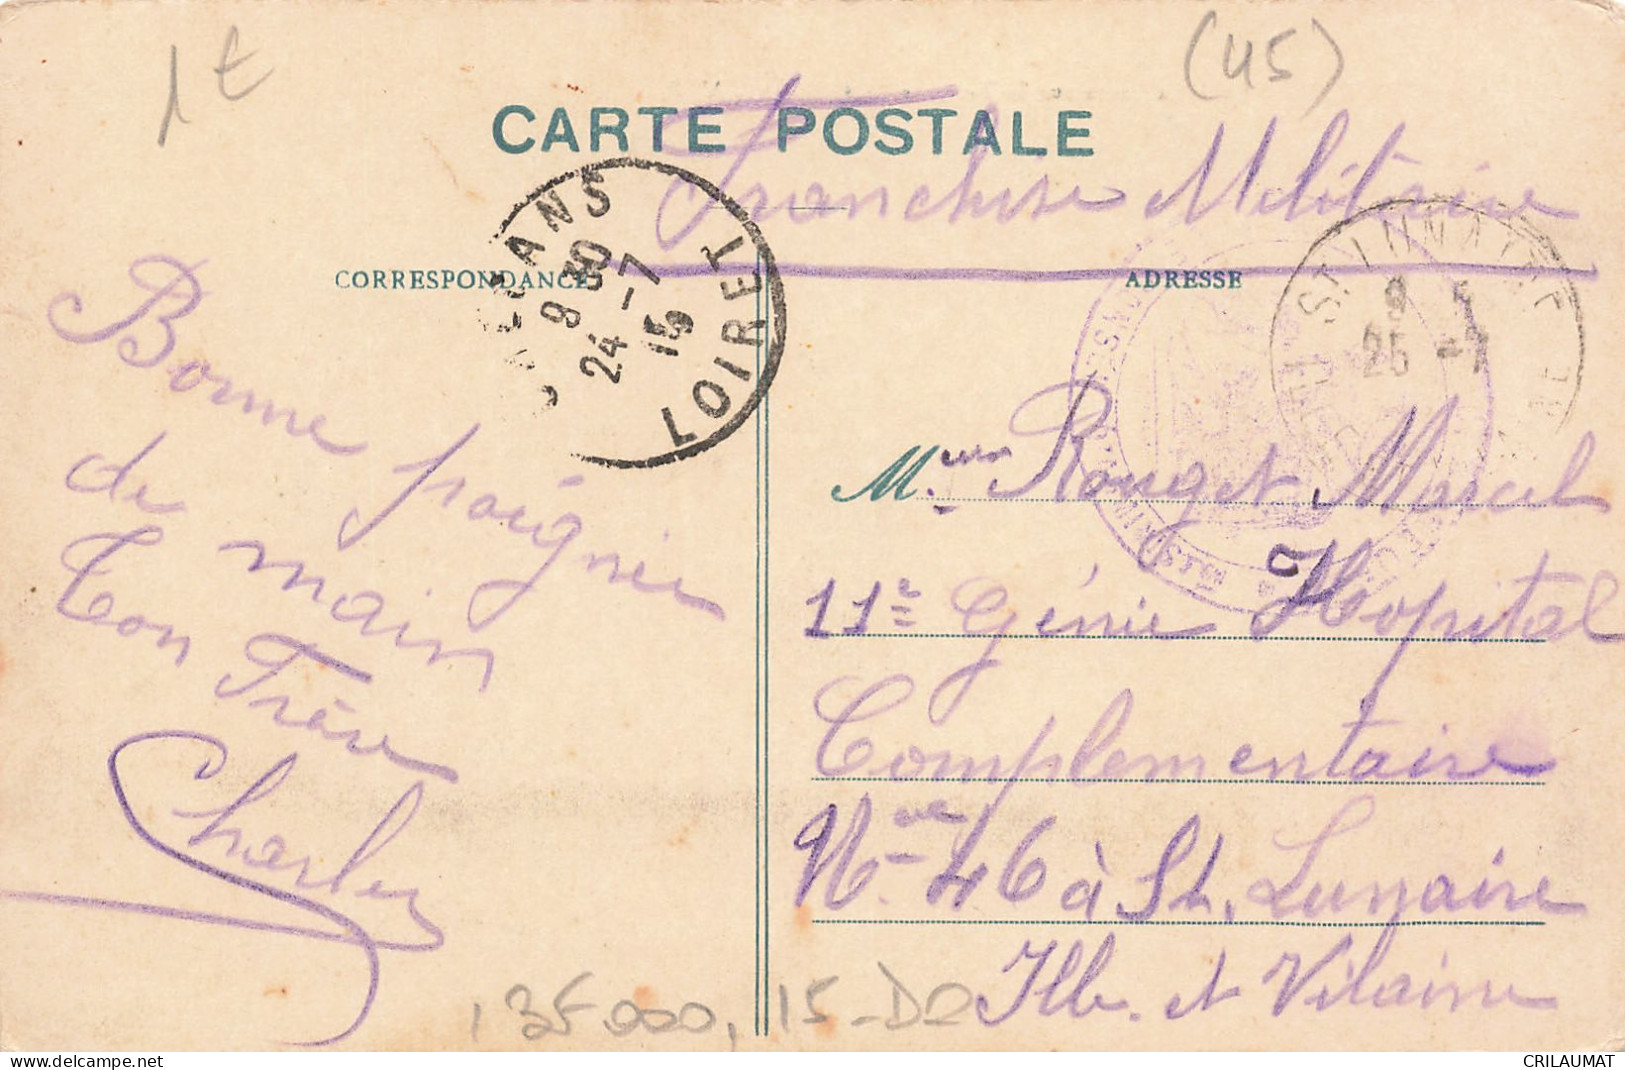 1€
(45)
CARTE POSTALE
Franchise Militaire
CORRESPONDANCE
ADRESSE
ORLEANS
9 30
24 -7
15
LOIRET
ST LUNAIRE
9 5
25 -7
Bonne poignée
de main
Ton Frère
Charles
M. Rouget Marcel
11e Génie Hopital
Complementaire
N. 46 à St. Lunaire
Ille. et Vilaine
135.000, 15-D2
CRILAUMAT